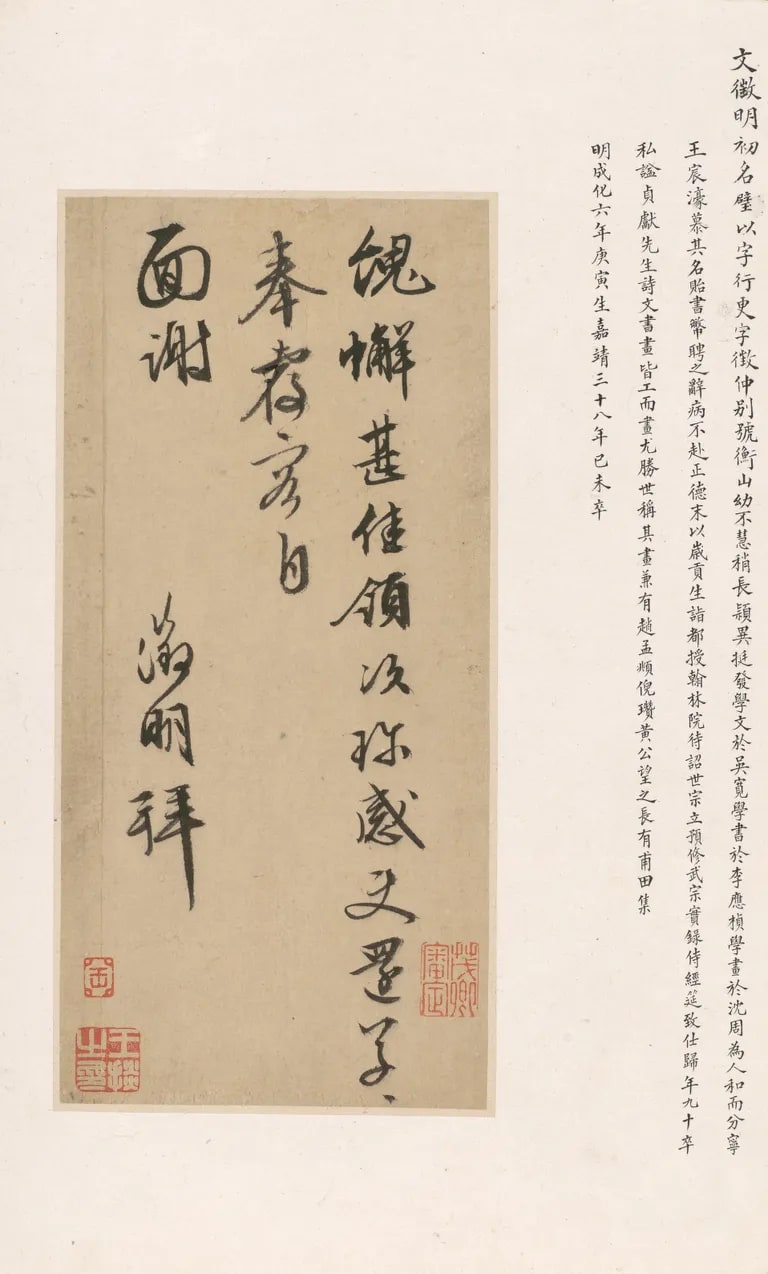 文徵明初名璧以字行更字徵仲別號衡山幼不慧稍長穎異挺發學文於吳寬學書於李應禎學畫於沈周為人和而介寧
王宸濠慕其名貽書幣聘之辭病不赴正德末以歲貢生詣都授翰林院待詔世宗立預修武宗實錄侍經筵致仕歸年九十卒
私諡貞獻先生詩文書畫皆工而畫尤勝世稱其畫兼有趙孟頫倪瓚黃公望之長有甫田集
明成化六年庚寅生嘉靖三十八年己未卒
餽蠏甚佳領次珎感使還草、
奉覆容日
面謝
徵明拜
茂卿
審定